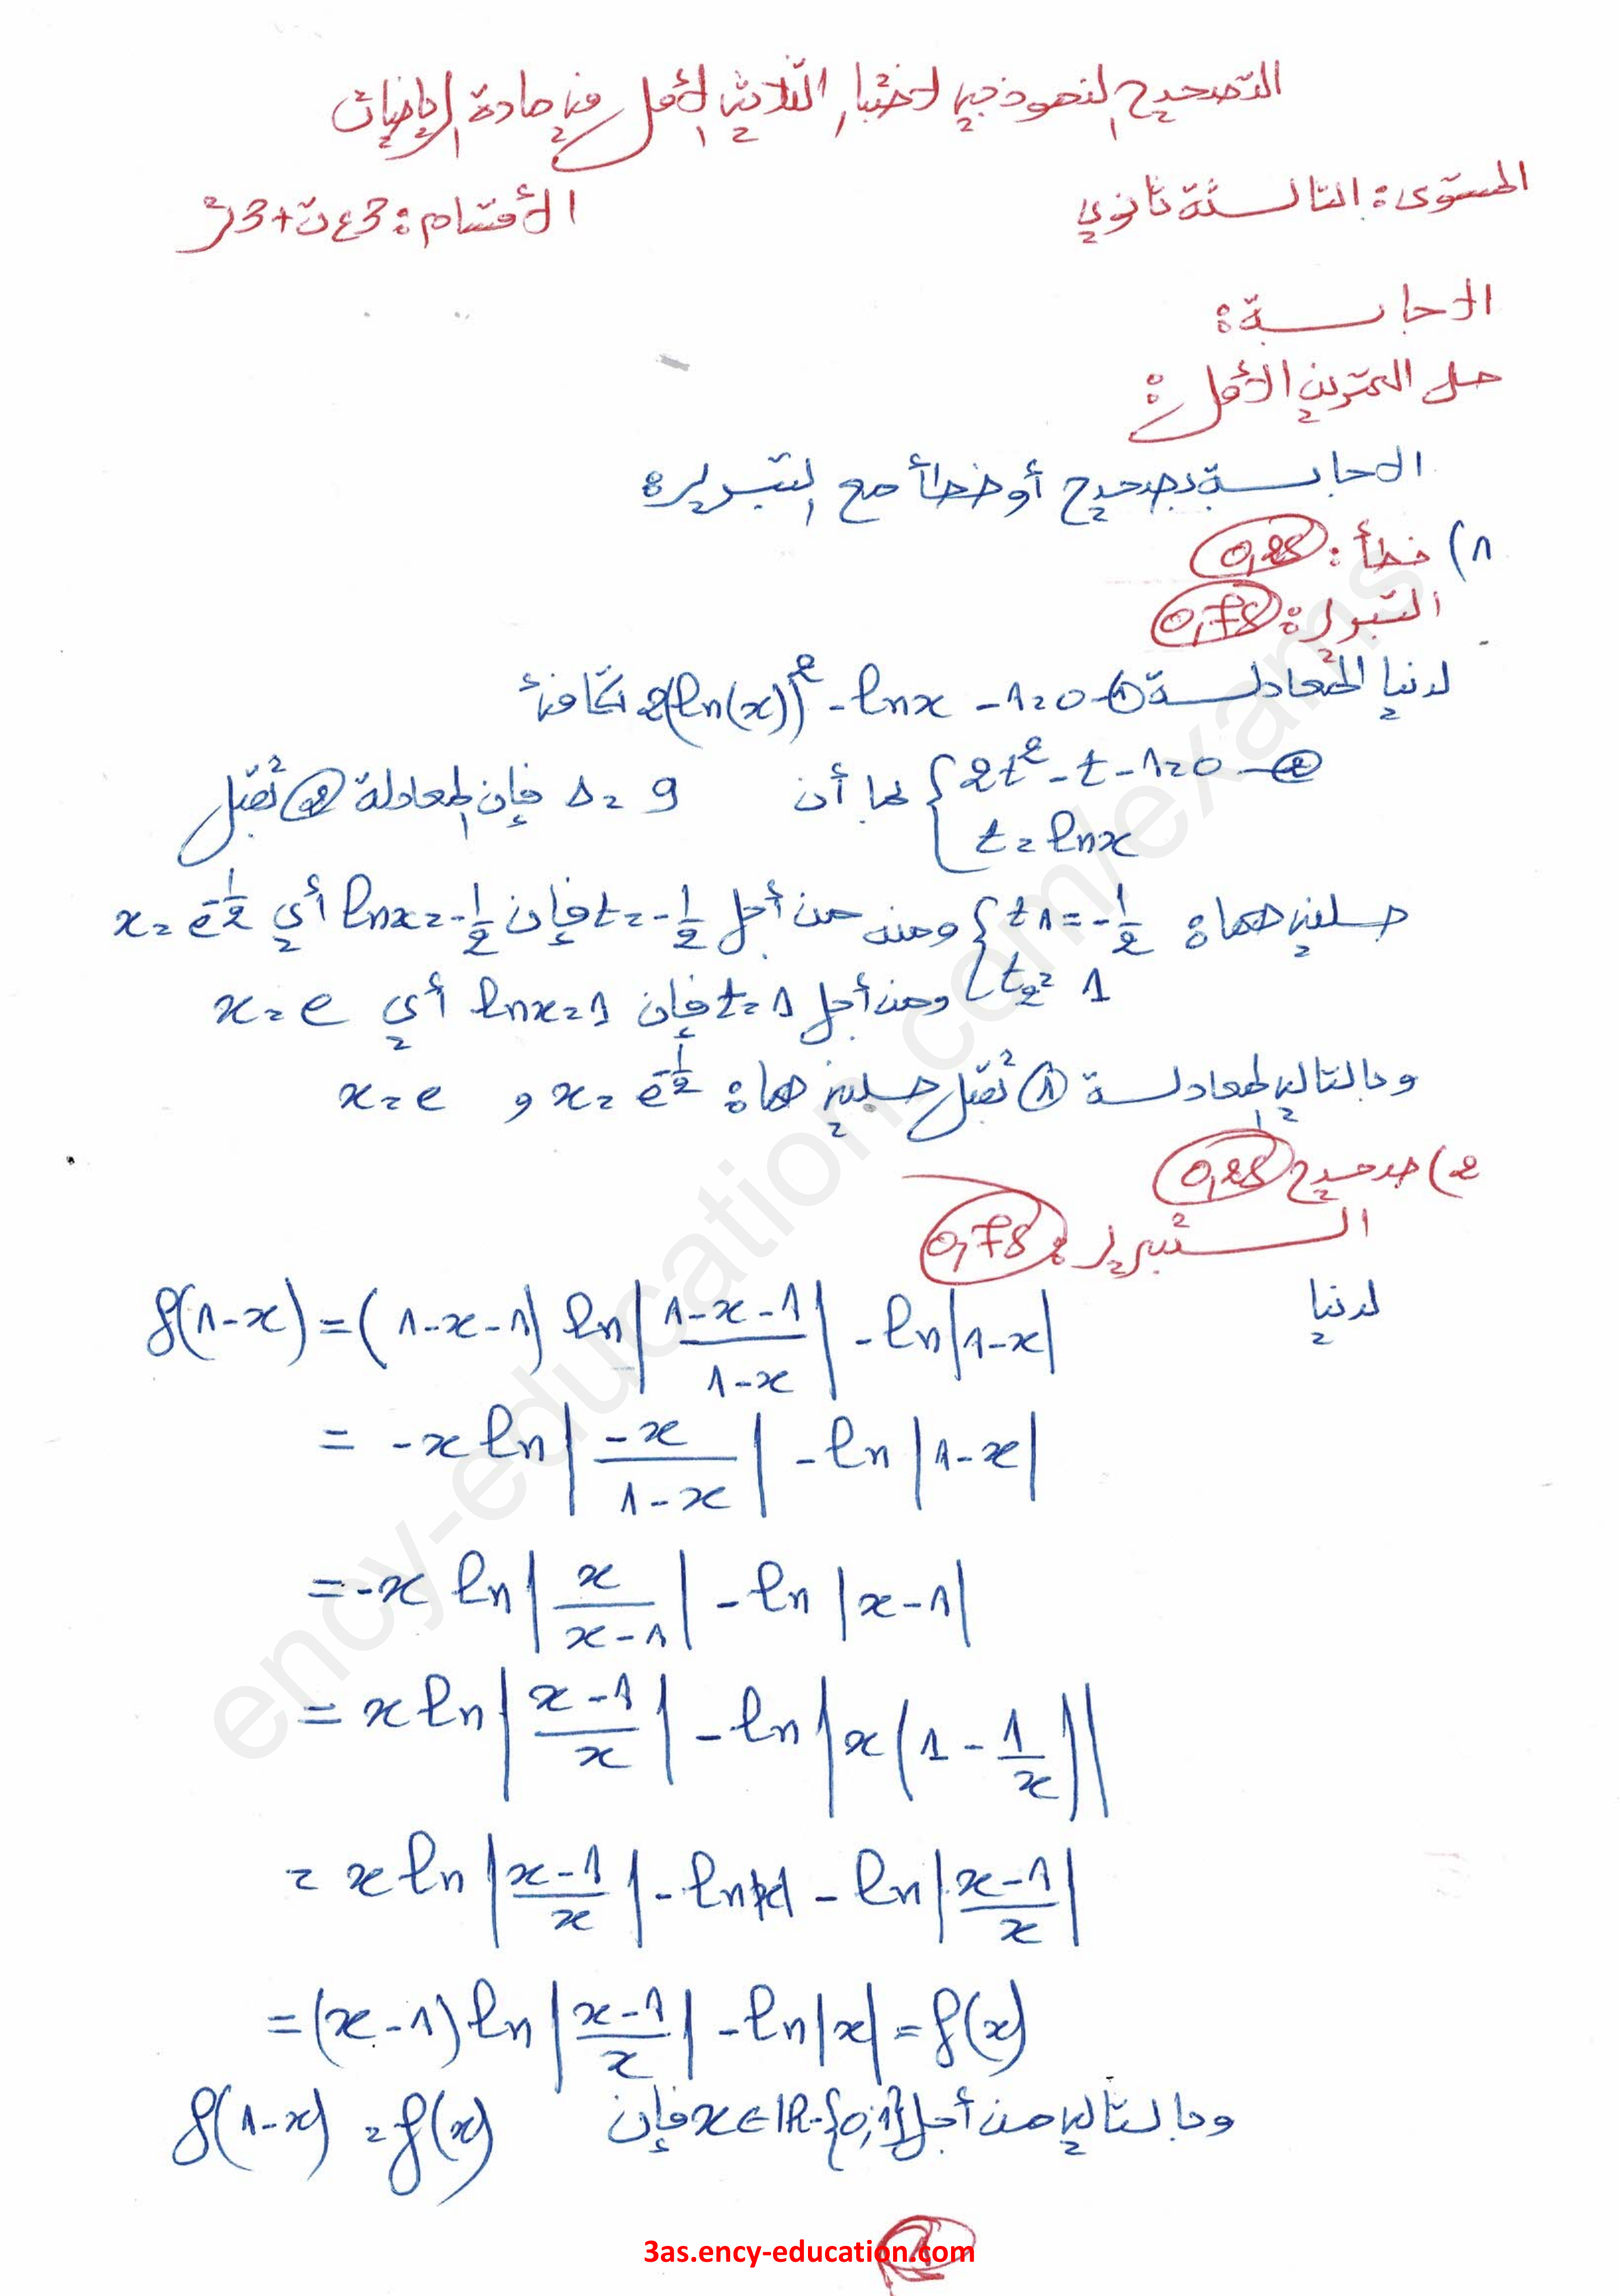 التصحيح النموذجي لاختبار الثلاثي الأول في مادة الرياضيات
المستوى: الثالثة ثانوي
الأقسام: 3ع ت + 3ر
الاجابة:
حل التمرين الأول:
الاجابة بصحيح أو خطأ مع التبرير:
1) خطأ: 0,25
التبرير: 0,75
لدينا المعادلة ① 2(ln(x))² - lnx - 1 = 0 تكافئ
{ 2t² - t - 1 = 0 — ② ، t = lnx بما أن Δ = 9 فإن المعادلة ② تقبل
حلين هما: { t1 = -1/2 ، t2 = 1 ومنه من أجل t = -1/2 فإن lnx = -1/2 أي x = e^(-1/2)
ومن أجل t = 1 فإن lnx = 1 أي x = e
وبالتالي المعادلة ① تقبل حلين هما: x = e^(-1/2) و x = e
2) صحيح 0,25
التبرير: 0,75
لدينا f(1-x) = (1-x-1) ln|(1-x-1)/(1-x)| - ln|1-x|
= -x ln|(-x)/(1-x)| - ln|1-x|
= -x ln|x/(x-1)| - ln|x-1|
= x ln|(x-1)/x| - ln|x(1 - 1/x)|
= x ln|(x-1)/x| - ln|x| - ln|(x-1)/x|
= (x-1) ln|(x-1)/x| - ln|x| = f(x)
وبالتالي من أجل x ∈ IR-{0;1} فإن f(1-x) = f(x)
1
3as.ency-education.com
ency-education.com/exams